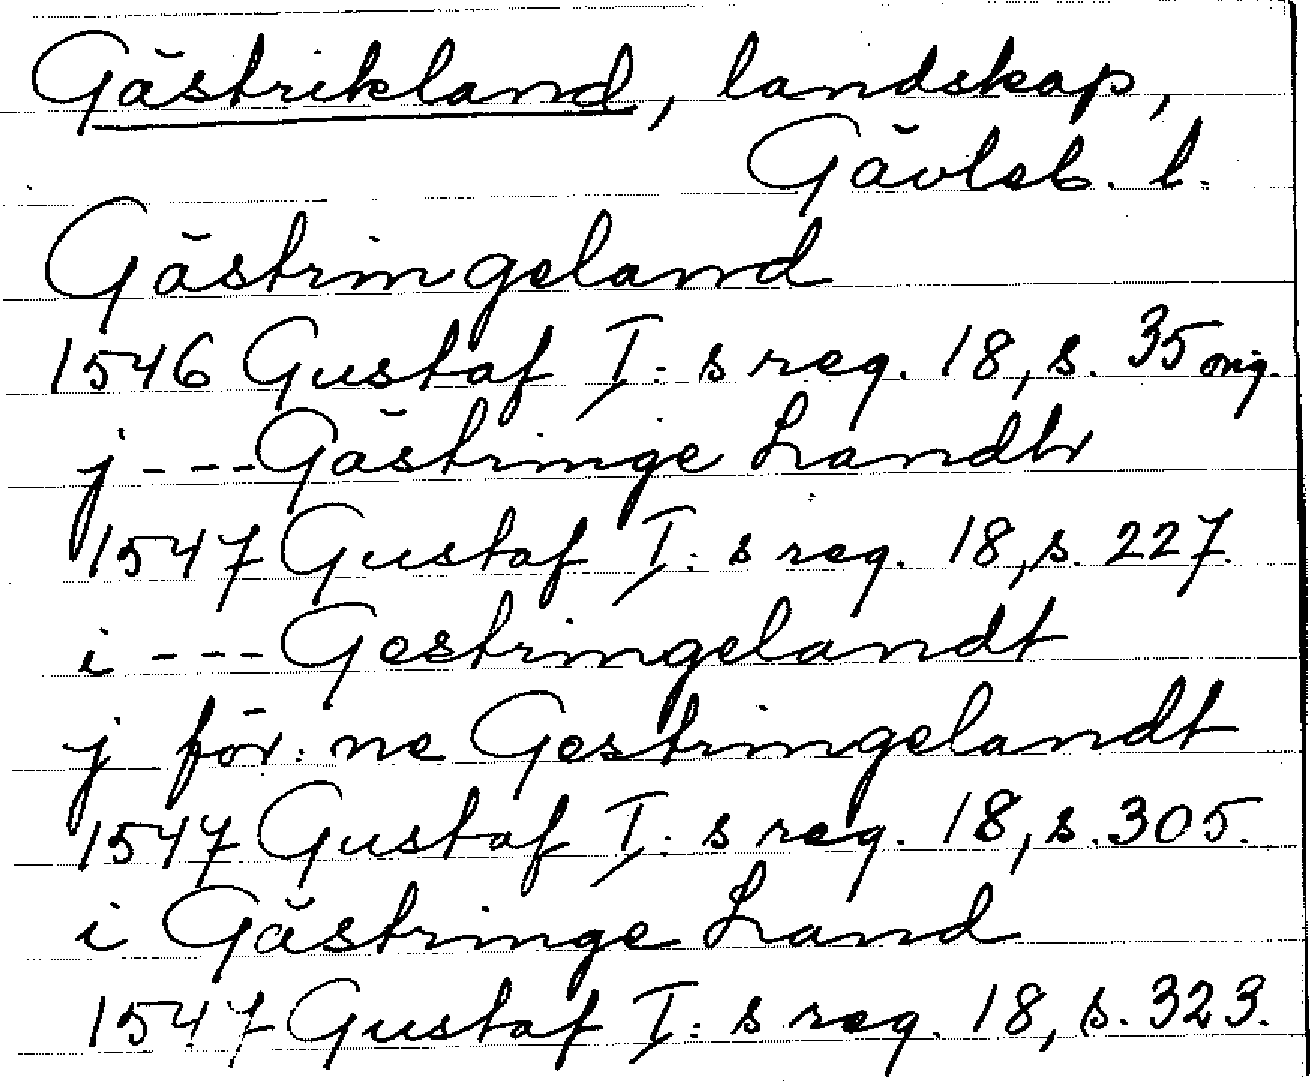 Gästrikland, landskap,
Gävleb. l.
Gästringeland
1546 Gustaf I: s reg. 18, s. 35 orig.
j --- Gästringe Landtt
1547 Gustaf I: s reg. 18, s. 227.
i --- Gestringelandt
j för: ne Gestringelandt
1547 Gustaf I: s reg. 18, s. 305.
i Gästringe Land
1547 Gustaf I: s reg. 18, s. 323.